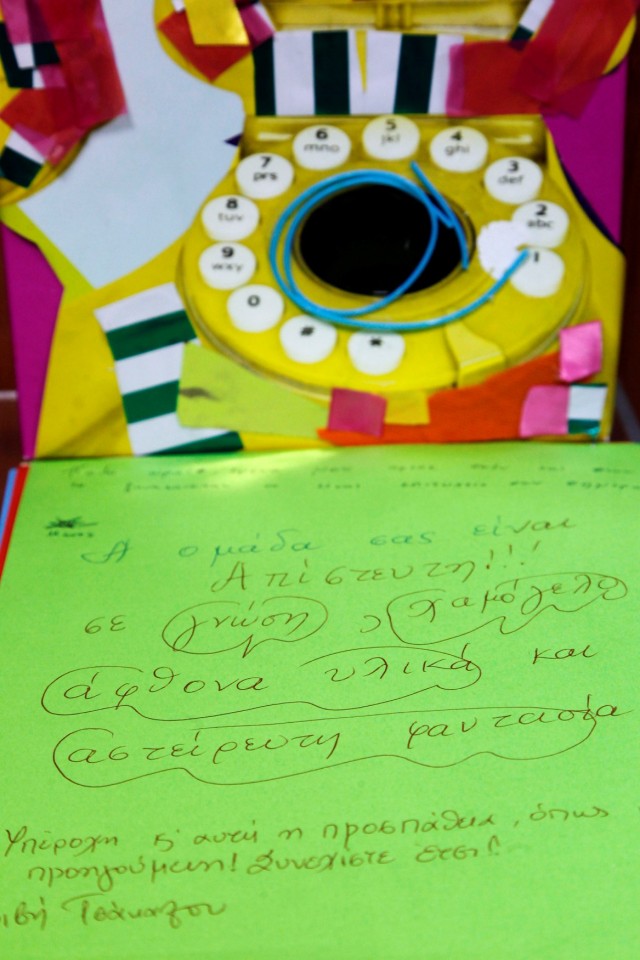 5
jkl
6
mno
4
ghi
7
prs
3
def
8
tuv
2
abc
9
wxy
1
0
#
*
Η ομάδα σας είναι
Απίστευτη!!!
σε γνώση, χαμόγελο
άφθονα υλικά και
αστείρευτη φαντασία
Υπέροχη κ' αυτή η προσπάθεια, όπως
προηγούμενη! Συνεχίστε έτσι!